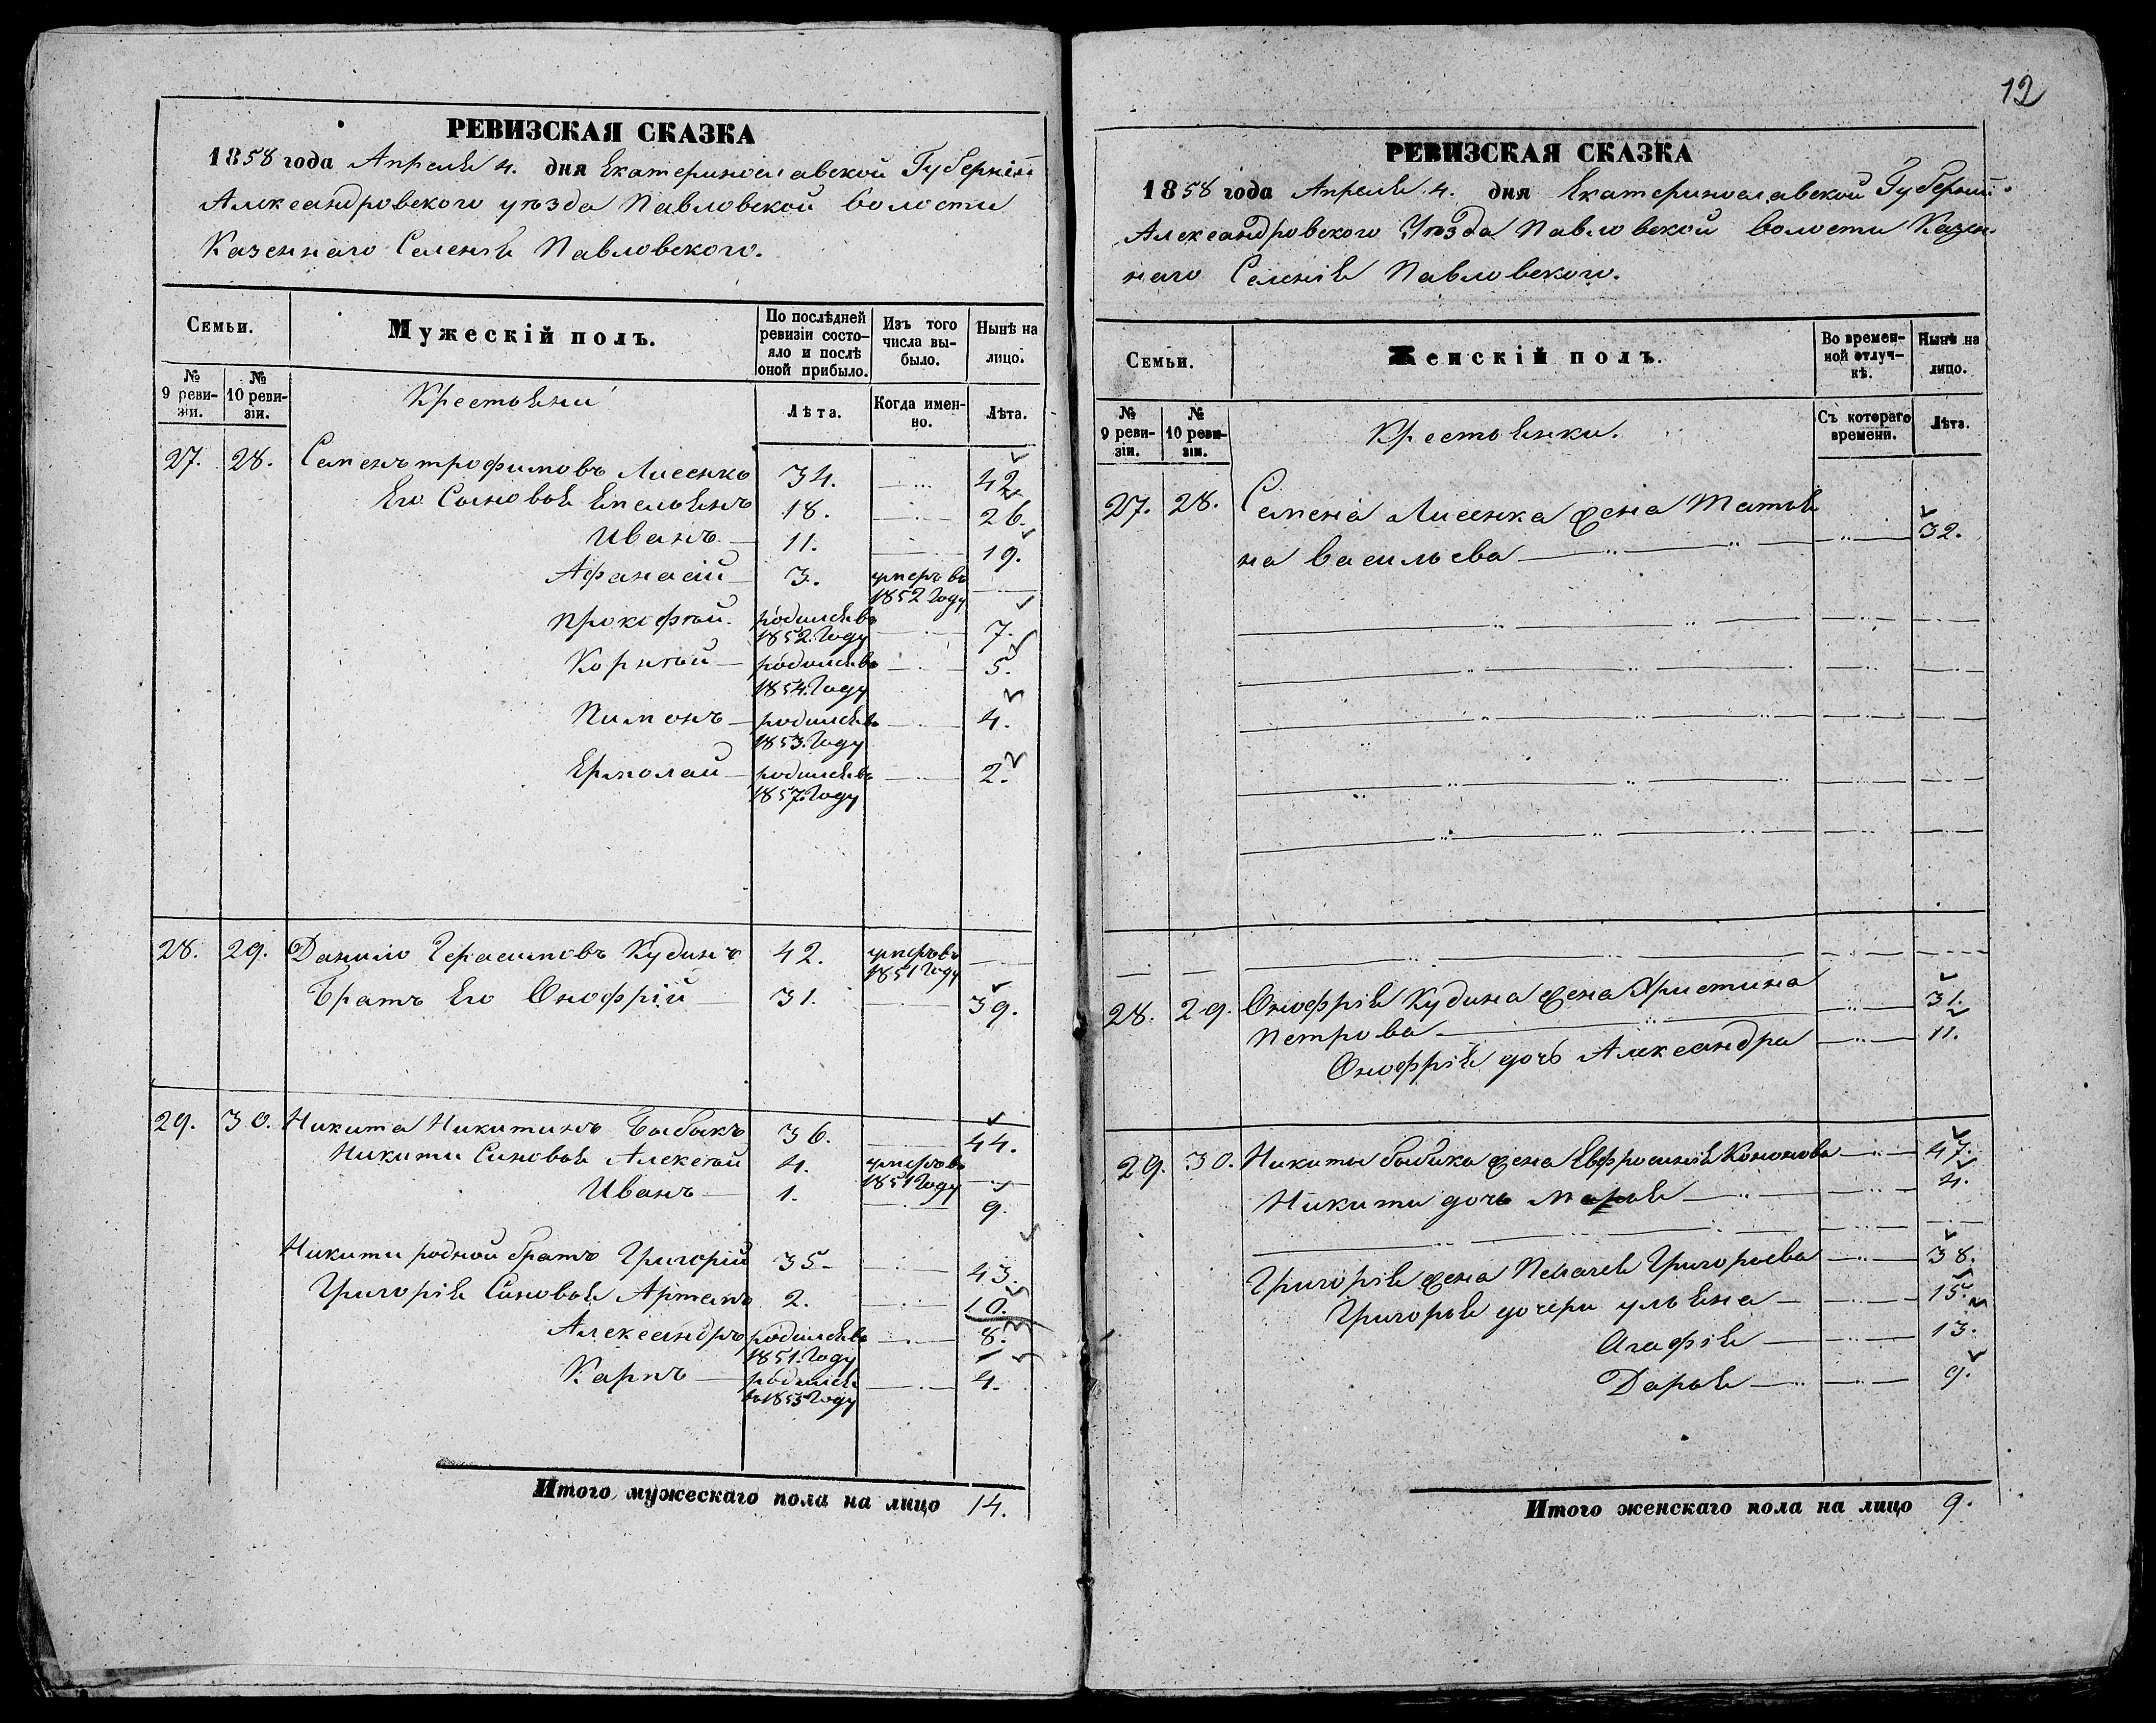 РЕВИЗСКАЯ СКАЗКА
1858 года Апреля 4. дня Екатеринославской Губерніи
Александровского уѣзда Павловской волости
Казеннаго Селенія Павловского.
Семьи.
Мужескій полъ.
По послѣдней ревизіи состояло и послѣ оной прибыло.
Изъ того числа выбыло.
Нынѣ на лицо.
№ 9 ревизіи.
№ 10 ревизіи.
Крестьяни
Лѣта.
Когда именно.
Лѣта.
27. 28. Семенъ трофимовъ Лисенко 34. 42
Его Сыновья Емельянъ 18. 26.
Иванъ 11. 19.
Афанасій 3. умеръ въ 1852 Году
Прокофѣй родился въ 1852. Году 7.
Корнѣй родился въ 1854. Году 5.
Пимонъ родился въ 1853. Году 4.
Ермолай родился въ 1857. Году 2.
28. 29. Данило Герасимовъ Кудинъ 42. умеръ въ 1851 Году
Братъ Его Онофрій 31. 39.
29. 30. Никита Никитинъ Быбыкъ 36. 44.
Никити Синовья Алексѣй 4. умеръ въ 1851 Году
Иванъ 1. 9.
Никити родной братъ Григорій 35 43.
Григорія Синовья Артемъ 2. 10.
Александръ родился въ 1851. Году 8.
Карпъ родился въ 1853 Году 4.
Итого мужескаго пола на лицо 14.
12
РЕВИЗСКАЯ СКАЗКА
1858 года Апреля 4. дня Екатеринославской Губерніи
Александровского Уѣзда Павловской волости Казен-
наго Селенія Павловского.
Семьи.
Женскій полъ.
Во временной отлучкѣ.
Нынѣ на лицо.
№ 9 ревизіи.
№ 10 ревизіи.
Крестьянки.
Съ котораго времени.
Лѣта.
27. 28. Семена Лисенка жена Татья
на васильева 32.
28. 29. Онофрія Кудина жена Христина 31.
Петрова
Онофрія дочь Александра 11.
29. 30. Никиты быбика жена Евфросинія Кононова 47.
Никити дочь Марья 4.
Григорія жена Пелагея Григорьева 38.
Григорья дочери ульяна 15.
Агафія 13.
Дарья 9.
Итого женскаго пола на лицо 9.